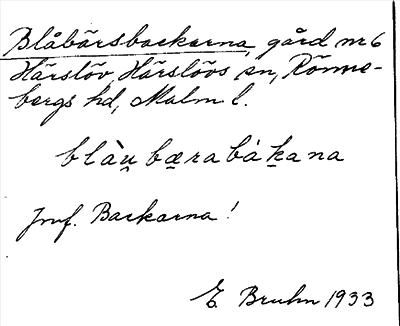 Blåbärsbackarna, gård nr 6
Härslöv, Härslövs sn, Rönne-
bergs hd, Malm. l.
blàu̯ bæra bákana
Jmf. Backarna!
E. Bruhn 1933